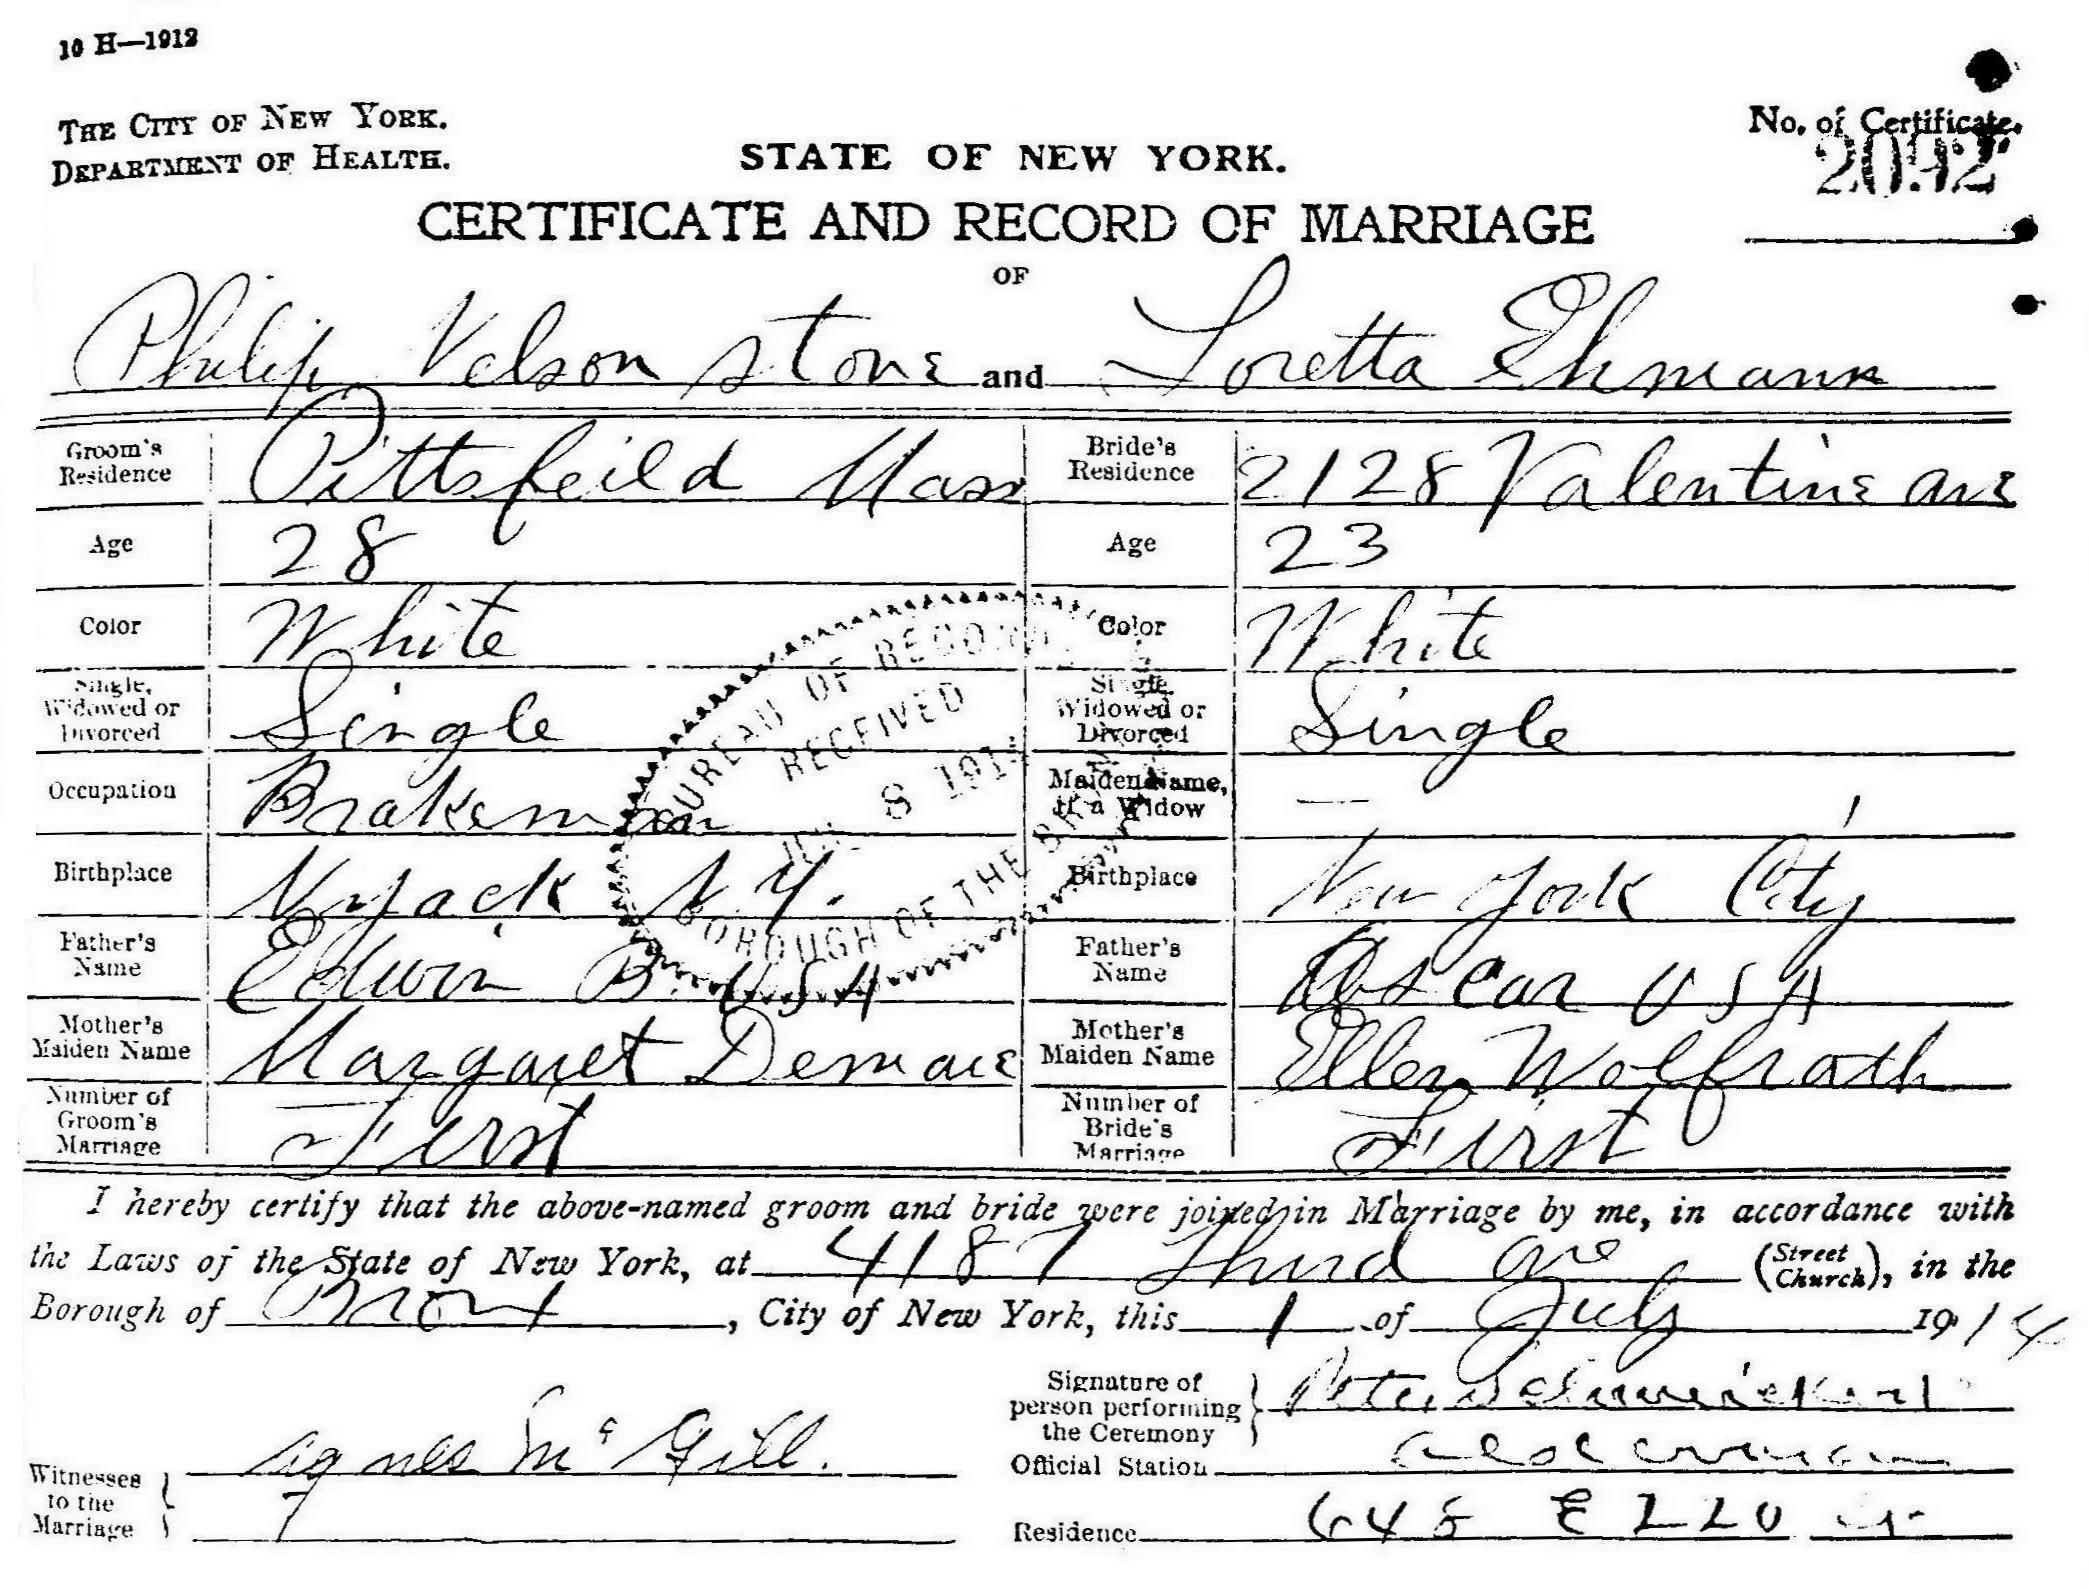 10 H—1912
THE CITY OF NEW YORK.
DEPARTMENT OF HEALTH.
STATE OF NEW YORK.
No. of Certificate.
2092
CERTIFICATE AND RECORD OF MARRIAGE
OF
Philip Nelson Stone and Loretta Ehmann
Groom's Residence Pittsfeild Mass Bride's Residence 2128 Valentine ave
Age 28 Age 23
Color White Color White
Single, Widowed or Divorced Single Single Widowed or Divorced Single
Occupation Brakeman Maiden Name, if a Widow —
Birthplace Nyack N.Y. Birthplace New York City
Father's Name Edwin B. USA Father's Name Oscar USA
Mother's Maiden Name Margaret Demare Mother's Maiden Name Ellen Wolfrath
Number of Groom's Marriage First Number of Bride's Marriage First
BUREAU OF RECORDS
RECEIVED
8 1914
BOROUGH OF THE BRONX
I hereby certify that the above-named groom and bride were joined in Marriage by me, in accordance with
the Laws of the State of New York, at 4187 Third ave (Street Church), in the
Borough of Bronx, City of New York, this 1 of July 1914
Witnesses to the Marriage Agnes McGill.
Signature of person performing the Ceremony Peter
Official Station Alderman
Residence 648 E 220 st